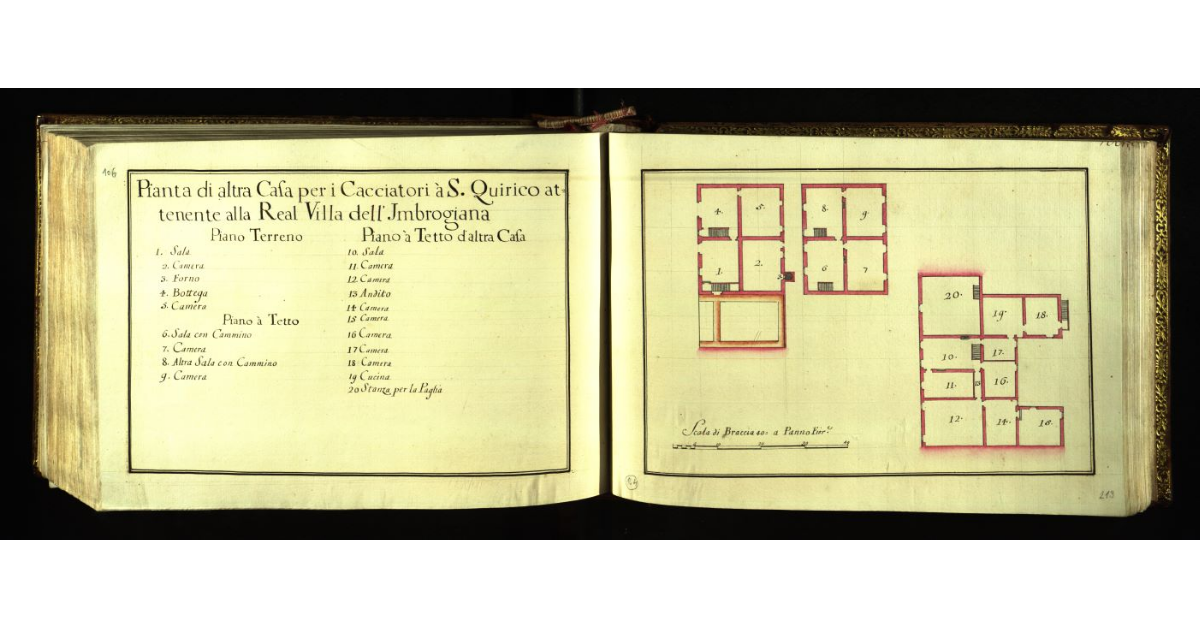 106
Pianta di altra Casa per i Cacciatori à S. Quirico at=
tenente alla Real Villa dell'Imbrogiana
Piano Terreno
1. Sala
2. Camera
3. Forno
4. Bottega
5. Camera
Piano à Tetto
6. Sala con Cammino
7. Camera
8. Altra Sala con Cammino
9. Camera
Piano à Tetto d'altra Casa
10. Sala
11 Camera
12 Camera
13 Andito
14 Camera
15 Camera
16 Camera
17 Camera
18 Camera
19 Cucina
20 Stanza per la Paglia
4.
5.
8.
9.
1.
2.
3
6
7
20.
19.
18.
10.
17.
11.
16.
12.
14.
Scala di Braccia 40. a Panno Fior.
213